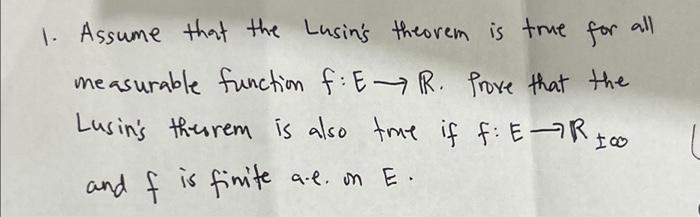 1. Assume that the Lusin's theorem is true for all
measurable function f: E → ℝ. Prove that the
Lusin's theorem is also true if f: E → ℝ±∞
and f is finite a.e. on E.